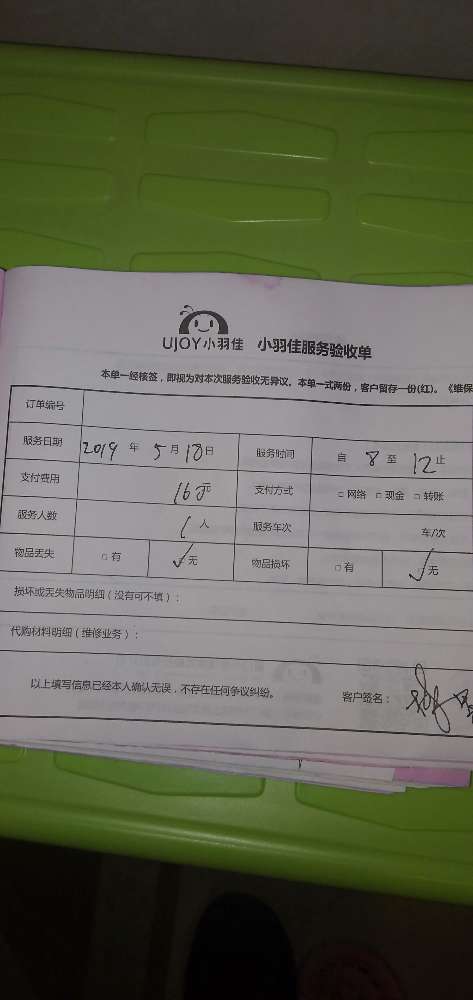 UJOY小羽佳 小羽佳服务验收单
本单一经核签，即视为对本次服务验收无异议。本单一式两份，客户留存一份(红)。《维保
订单编号
服务日期 2019 年 5 月 18 日 服务时间 自 8 至 12 止
支付费用 160元 支付方式 □ 网络 □ 现金 □ 转账
服务人数 1 人 服务车次 车/次
物品丢失 □ 有 ✓ 无 物品损坏 □ 有 ✓ 无
损坏或丢失物品明细（没有可不填）：
代购材料明细（维修业务）：
以上填写信息已经本人确认无误，不存在任何争议纠纷。 客户签名：